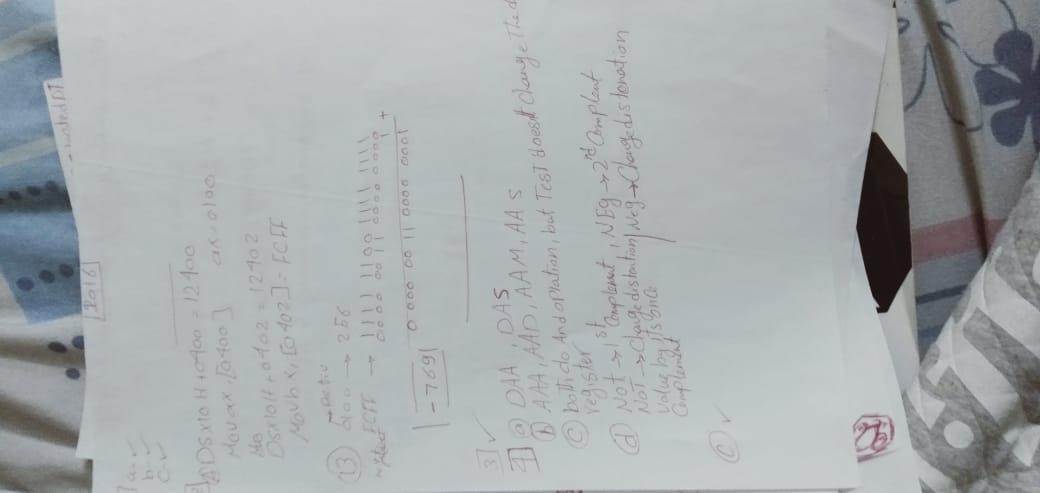 2016
a. ✓
b. ✓
c. ✓
DS x 10 H + 0400 = 12400
Mov ax, [0400] ax = 0100
DS x 10 H + 0402 = 12402
Mov bx, [0402] = FCFF
13
0100 → 256
FCFF → 1111 1100 1111 1111
0000 0011 0000 0000
1 +
0000 0011 0000 0001
-769
3] ✓
4] a DAA, DAS
b AAA, AAD, AAM, AAS
c both do And opration, but Test doesn't Change The d
register
d Not → 1st Complement, NEg → 2nd Complent
NOT → Change distantion Neg → Change distonation
value by Its once
Complement
e ✓